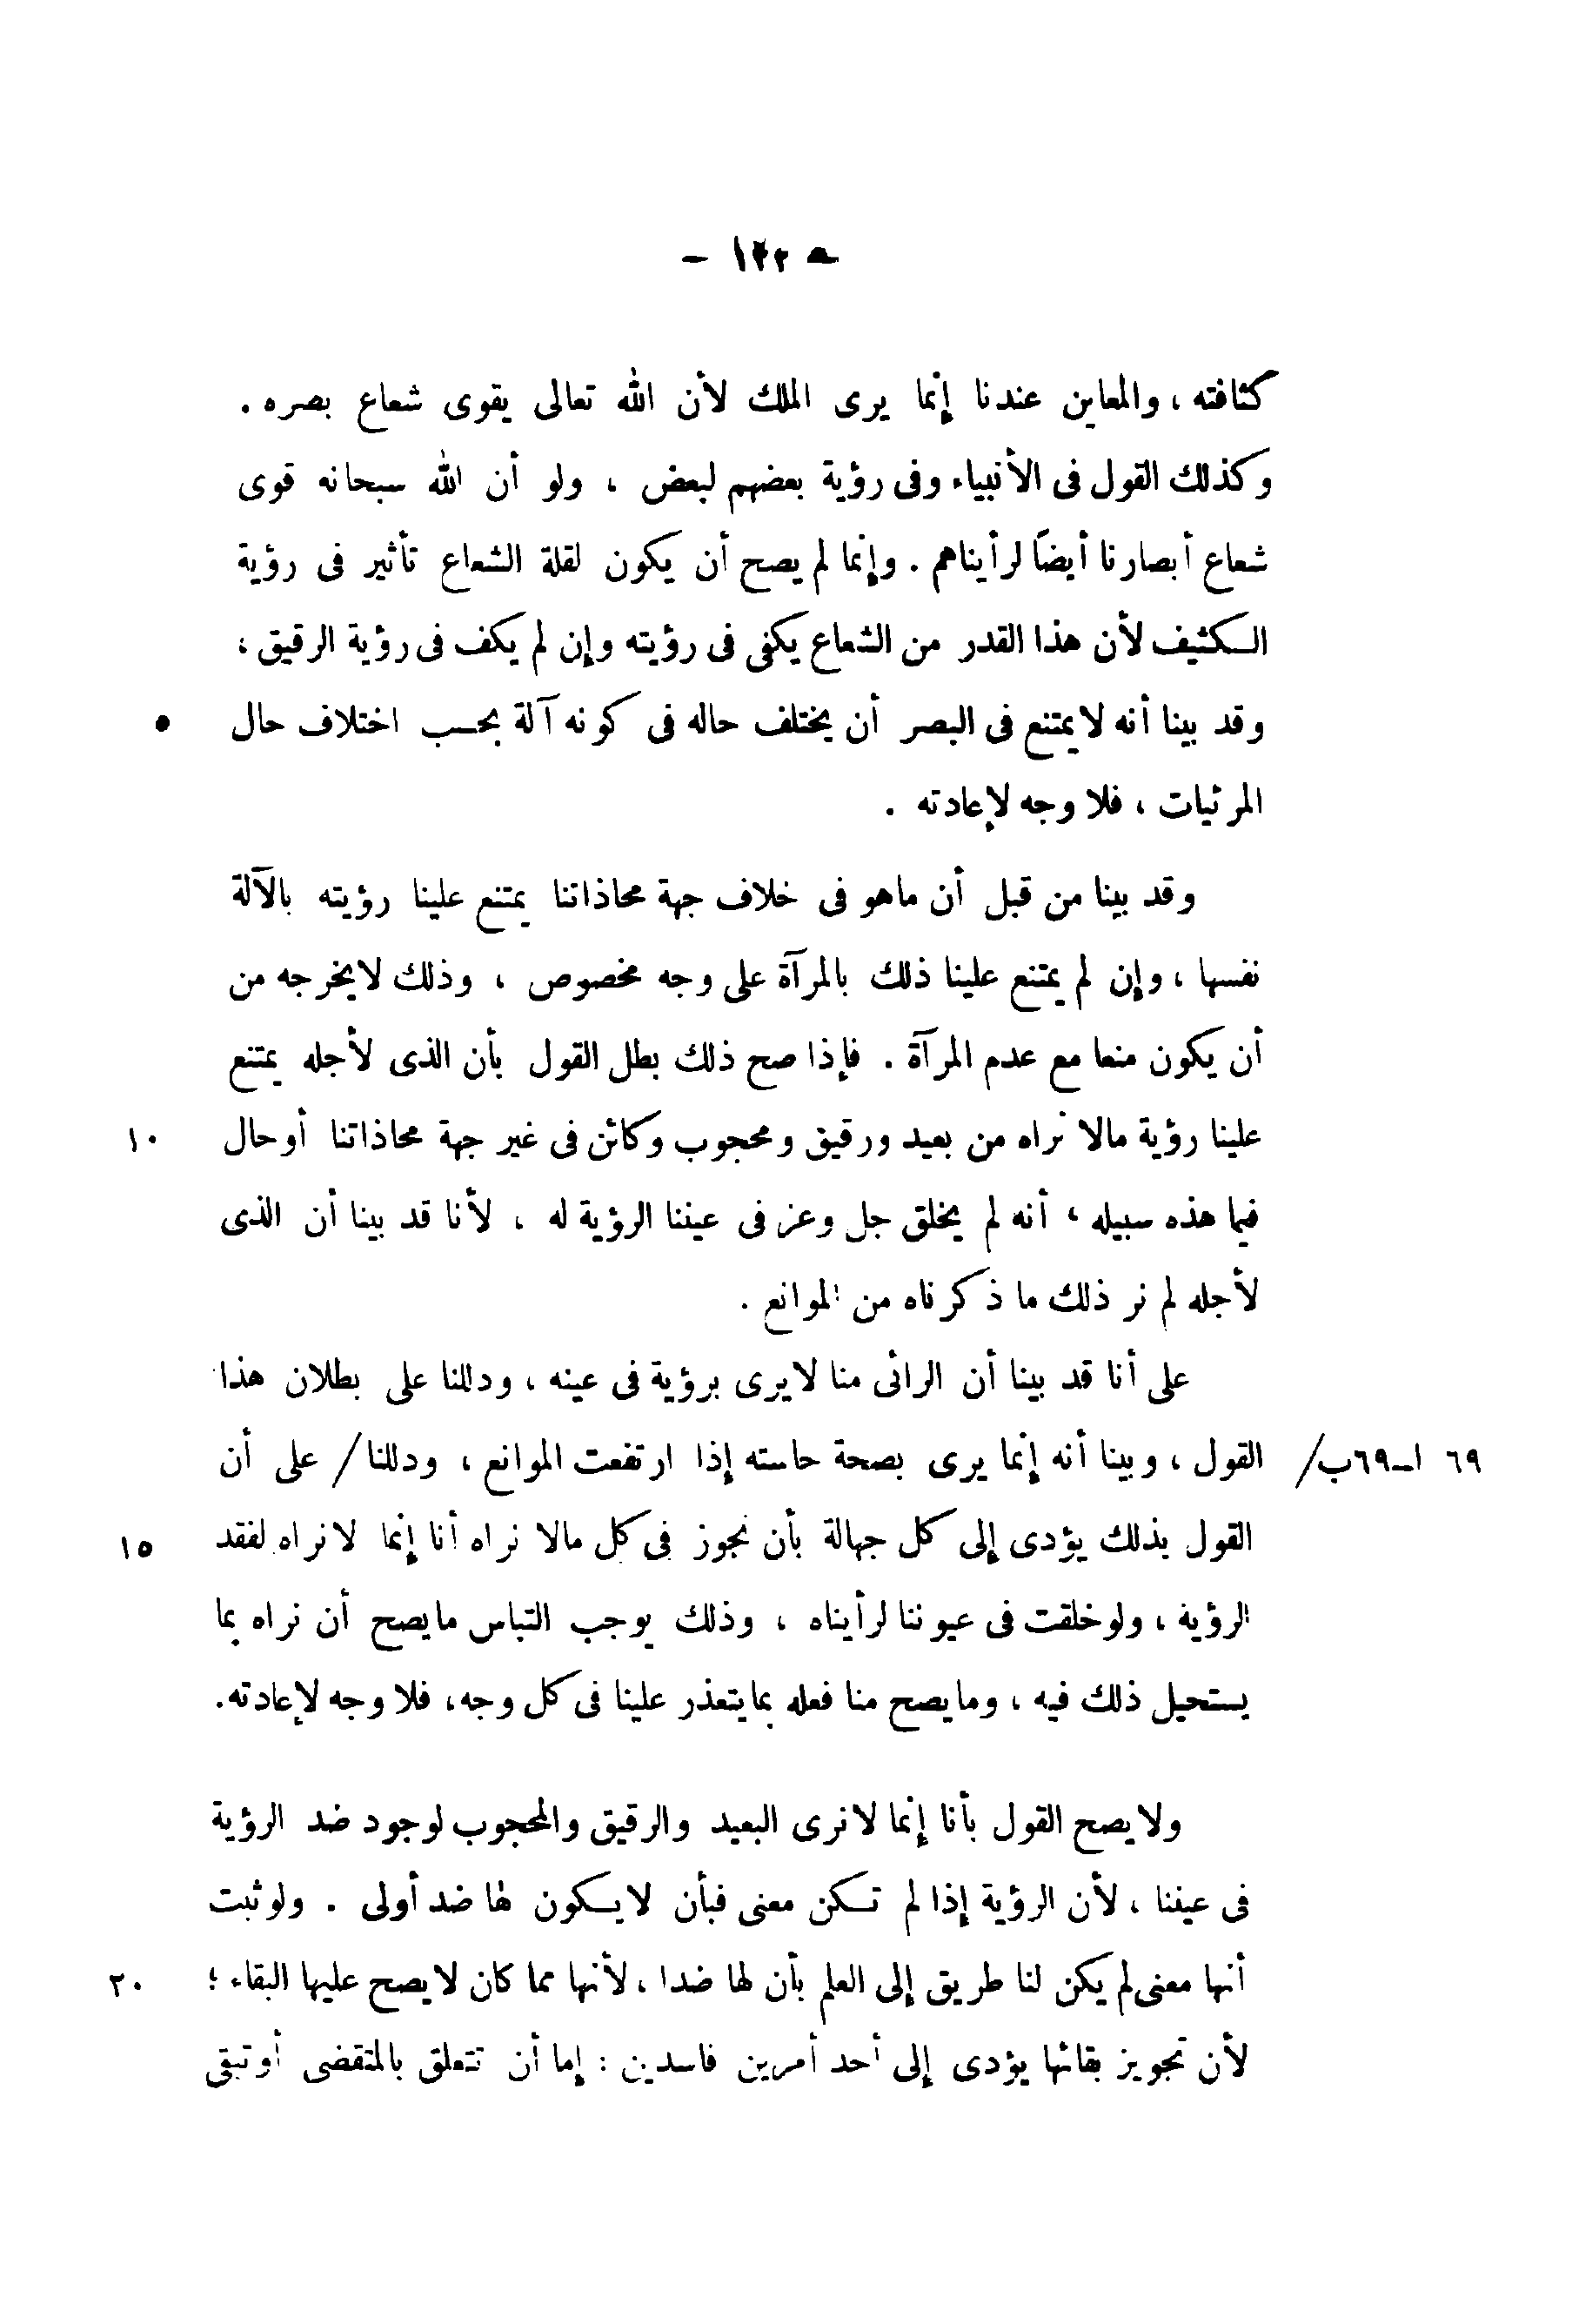 كثافته ، والمعاين عندنا إنما يرى الملك لأن الله تعالى يقوى شعاع بصره .
وكذلك القول فى الأنبياء وفى رؤية بعضهم لبعض ، ولو أن الله سبحانه قوى
شعاع أبصارنا أيضاً لرأيناهم . وإنما لم يصح أن يكون لقلة الشعاع تأثير فى رؤية
الكثيف لأن هذا القدر من الشعاع يكفى فى رؤيته وإن لم يكف فى رؤية الرقيق ،
وقد بينا أنه لا يمتنع فى البصر أن يختلف حاله فى كونه آلة بحسب اختلاف حال ٥
المرئيات ، فلا وجه لإعادته .
وقد بينا من قبل أن ماهو فى خلاف جهة محاذاتنا يمتنع علينا رؤيته بالآلة
نفسها ، وإن لم يمتنع علينا ذلك بالمرآة على وجه مخصوص ، وذلك لا يخرجه من
أن يكون منعا مع عدم المرآة . فإذا صح ذلك بطل القول بأن الذى لأجله يمتنع
علينا رؤية مالا نراه من بعيد ورقيق ومحجوب وكائن فى غير جهة محاذاتنا أوحال ١٠
فيما هذه سبيله ، أنه لم يخلق جل وعز فى عيننا الرؤية له ، لأنا قد بينا أن الذى
لأجله لم نر ذلك ما ذكرناه من الموانع .
على أنا قد بينا أن الرائى منا لا يرى برؤية فى عينه ، ودللنا على بطلان هذا
٦٩ ا-٦٩ب/ القول ، وبينا أنه إنما يرى بصحة حاسته إذا ارتفعت الموانع ، ودللنا/ على أن
القول بذلك يؤدى إلى كل جهالة بأن نجوز فى كل مالا نراه أنا إنما لا نراه لفقد ١٥
الرؤية ، ولو خلقت فى عيوننا لرأيناه ، وذلك يوجب التباس مايصح أن نراه بما
يستحيل ذلك فيه ، ومايصح منا فعله بما يتعذر علينا فى كل وجه، فلا وجه لإعادته.
ولا يصح القول بأنا إنما لا نرى البعيد والرقيق والمحجوب لوجود ضد الرؤية
فى عيننا ، لأن الرؤية إذا لم تكن معنى فبأن لا يكون لها ضد أولى . ولو ثبت
أنها معنى لم يكن لنا طريق إلى العلم بأن لها ضدا ، لأنها مما كان لا يصح عليها البقاء ؛ ٢٠
لأن تجويز بقائها يؤدى إلى أحد أمرين فاسدين : إما أن تتعلق بالمتقضى أو تبقى